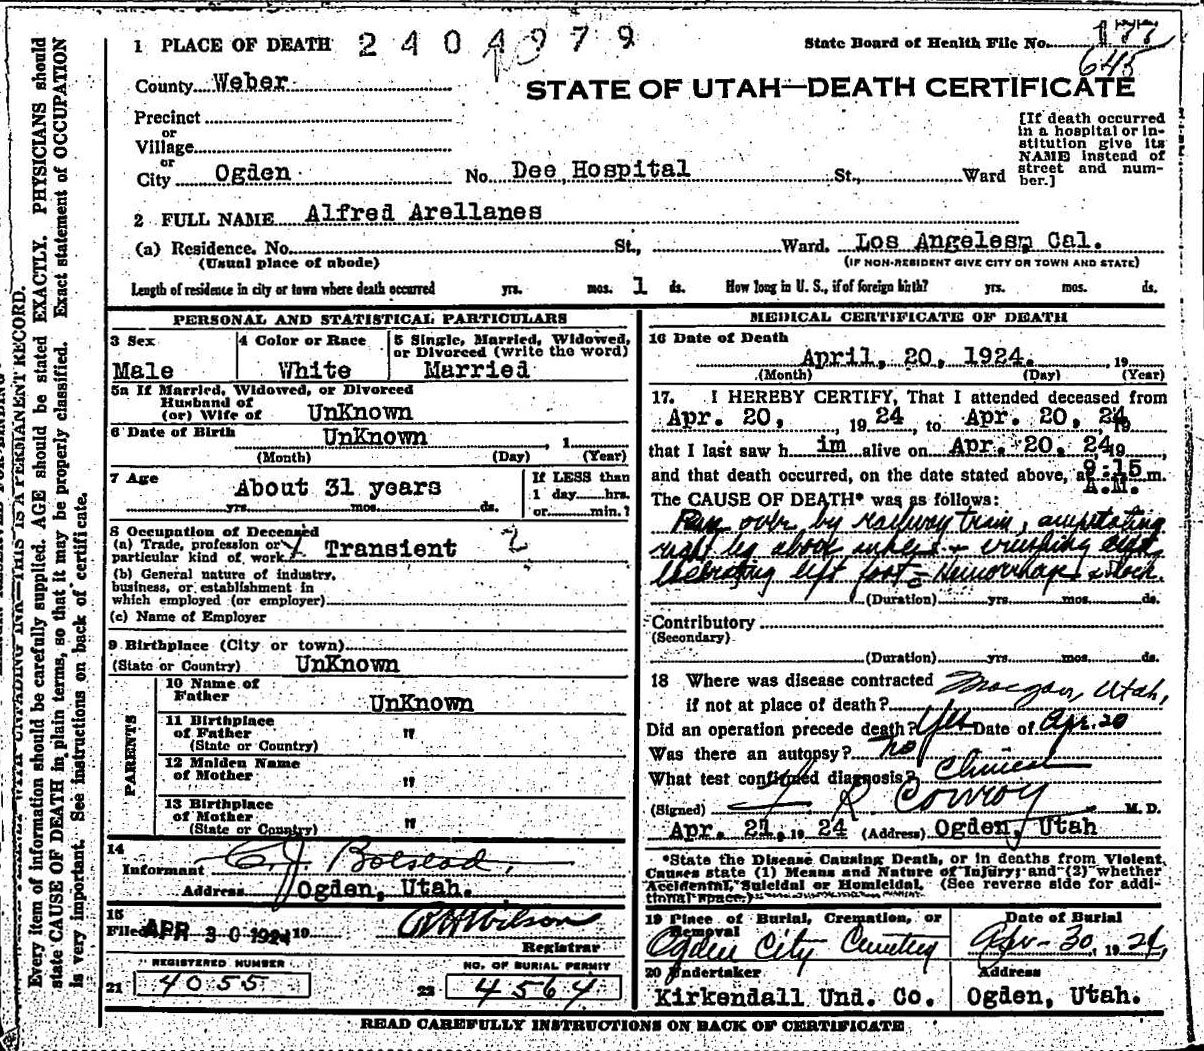 1 PLACE OF DEATH 2404979
State Board of Health File No. 177
645
County Weber
STATE OF UTAH—DEATH CERTIFICATE
Precinct
or
Village
or
City Ogden No. Dee Hospital St., Ward
[If death occurred
in a hospital or in-
stitution give its
NAME instead of
street and num-
ber.]
2 FULL NAME Alfred Arellanes
(a) Residence. No. St., Ward. Los Angeles, Cal.
(Usual place of abode) (IF NON-RESIDENT GIVE CITY OR TOWN AND STATE)
Length of residence in city or town where death occurred yrs. mos. 1 ds. How long in U. S., if of foreign birth? yrs. mos. ds.
PERSONAL AND STATISTICAL PARTICULARS
3 Sex
Male
4 Color or Race
White
5 Single, Married, Widowed,
or Divorced (write the word)
Married
5a If Married, Widowed, or Divorced
Husband of
(or) Wife of UnKnown
6 Date of Birth UnKnown , 1
(Month) (Day) (Year)
7 Age About 31 years
yrs. mos. ds.
If LESS than
1 day hrs.
or min.?
8 Occupation of Deceased
(a) Trade, profession or
particular kind of work Transient 2
(b) General nature of industry,
business, or establishment in
which employed (or employer)
(c) Name of Employer
9 Birthplace (City or town)
(State or Country) UnKnown
PARENTS
10 Name of
Father UnKnown
11 Birthplace
of Father "
(State or Country)
12 Maiden Name
of Mother "
13 Birthplace
of Mother "
(State or Country)
14
Informant C. J.
Address Ogden, Utah.
15
Filed APR 30 1924 19 Wilson
Registrar
REGISTERED NUMBER
21 4055
NO. OF BURIAL PERMIT
22 4564
MEDICAL CERTIFICATE OF DEATH
16 Date of Death
April, 20, 1924. , 19
(Month) (Day) (Year)
17. I HEREBY CERTIFY, That I attended deceased from
Apr. 20, , 19 24, to Apr. 20, 24 19
that I last saw h im alive on Apr. 20, 24, 19 ,
and that death occurred, on the date stated above, at 9:15 m.
A.M.
The CAUSE OF DEATH* was as follows:
Run over by railway train, amputating
right leg above & crushing and
left foot = Hemorrhage & shock.
(Duration) yrs. mos. ds.
Contributory
(Secondary)
(Duration) yrs. mos. ds.
18 Where was disease contracted
if not at place of death? Morgan, Utah,
Did an operation precede death? Yes Date of Apr. 20
Was there an autopsy? no
What test confirmed diagnosis? Clinical
(Signed) R Conroy M. D.
Apr. 21, 19 24 (Address) Ogden, Utah
*State the Disease Causing Death, or in deaths from Violent
Causes state (1) Means and Nature of Injury; and (2) whether
Accidental, Suicidal or Homicidal. (See reverse side for addi-
tional space.)
19 Place of Burial, Cremation, or
Removal
Ogden City Cemetery
Date of Burial
Apr-30, 1924,
20 Undertaker
Kirkendall Und. Co.
Address
Ogden, Utah.
READ CAREFULLY INSTRUCTIONS ON BACK OF CERTIFICATE
THIS IS A PERMANENT RECORD.
Every item of information should be carefully supplied. AGE should be stated EXACTLY. PHYSICIANS should
state CAUSE OF DEATH in plain terms, so that it may be properly classified. Exact statement of OCCUPATION
is very important. See instructions on back of certificate.